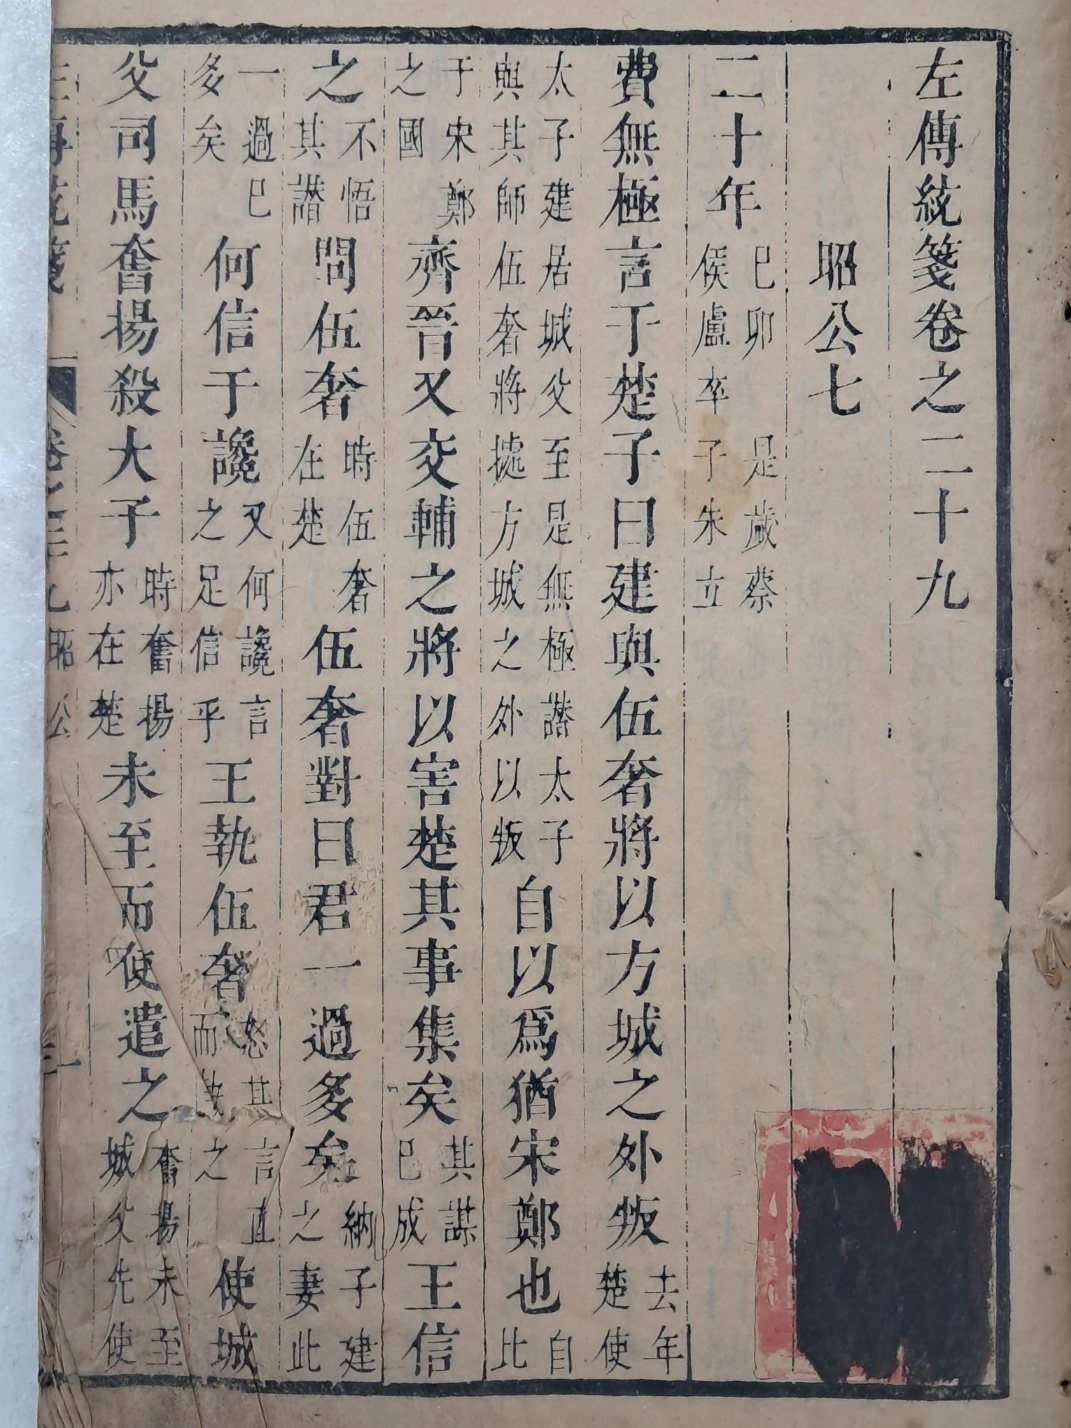 左傳統箋卷之二十九
昭公七
二十年己卯是歲蔡侯盧卒子朱立
費無極言于楚子曰建與伍奢將以方城之外叛去年楚使
太子建居城父至是無極譖太子與其師伍奢將㨿方城之外以叛自以爲猶宋鄭也自比
于宋鄭之國齊晉又交輔之將以害楚其事集矣其謀已成王信
之不悟其譖問伍奢時伍奢在楚伍奢對曰君一過多矣納子建之妻此
一過已多矣何信于讒又何讒言之足信乎王執伍奢怒其言直而執之使城
父司馬奮揚殺大子時奮揚亦在楚未至而使遣之奮揚未至城父先使
左傳統箋 卷之二十九 昭公 一